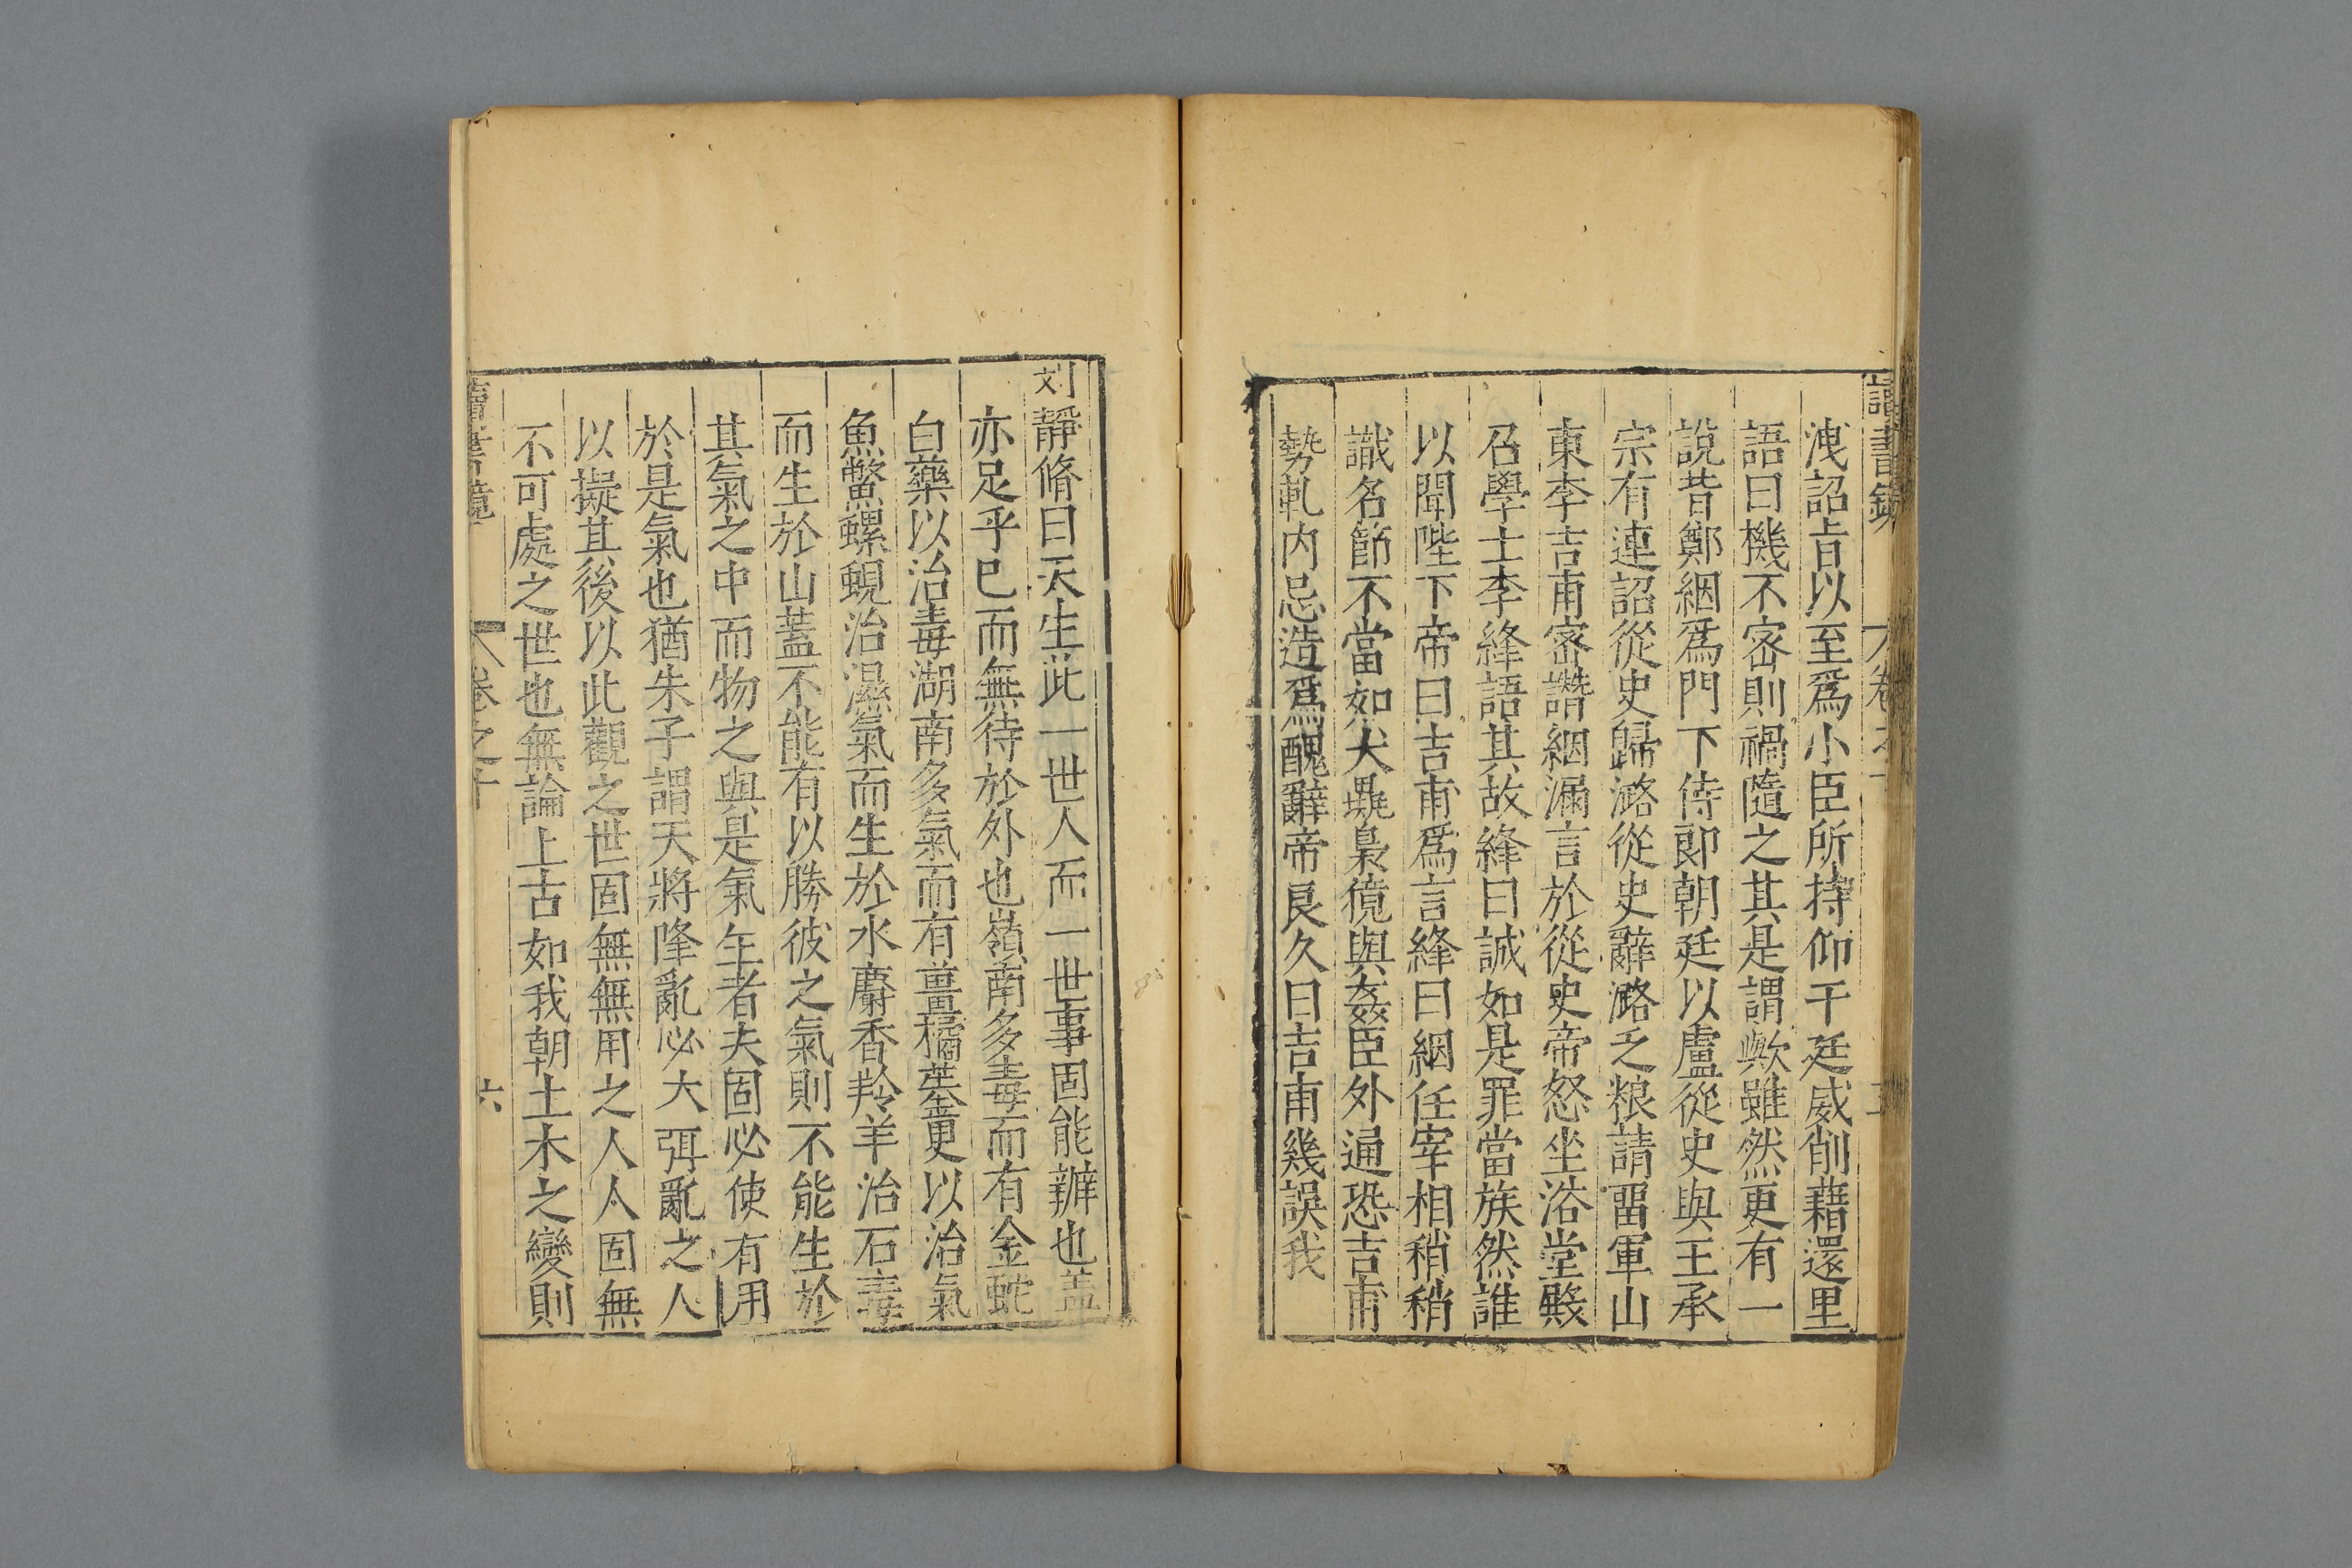 讀書鏡 卷之十 五
洩詔旨以至爲小臣所持仰干廷威削藉還里
語曰機不宻則禍隨之其是謂歟雖然更有一
說昔鄭絪爲門下侍郎朝廷以盧從史與王承
宗有連詔從史歸潞從史辭潞乏粮請畱軍山
東李吉甫宻譖絪漏言於從史帝怒坐浴堂殿
召學士李絳語其故絳曰誠如是罪當族然誰
以聞陛下帝曰吉甫爲言絳曰絪任宰相稍稍
識名節不當如犬彘梟獍與姦臣外通恐吉甫
勢軋内忌造爲醜辭帝良久曰吉甫幾誤我
刘靜脩曰天生此一世人而一世事固能辦也盖
亦足乎已而無待於外也嶺南多毒而有金蛇
白藥以治毒湖南多氣而有薑橘茱萸以治氣
魚鱉螺蜆治濕氣而生於水麝香羚羊治石毒
而生於山蓋不能有以勝彼之氣則不能生於
其氣之中而物之與是氣生者夫固必使有用
於是氣也猶朱子謂天將降亂必大弭亂之人
以擬其後以此觀之世固無無用之人人固無
不可處之世也無論上古如我朝土木之變則
讀書鏡 卷之十 六